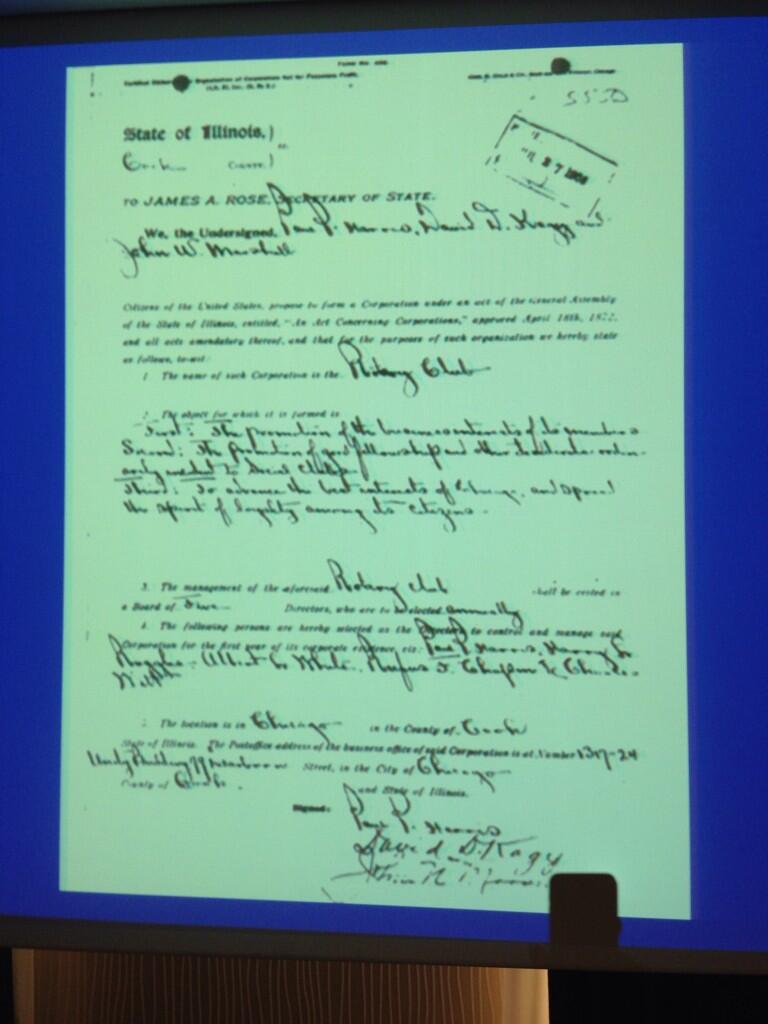 Form No.
Organization of Corporation Not for Pecuniary Profit.
5550
State of Illinois,
Cook County.
27
TO JAMES A. ROSE, SECRETARY OF STATE.
We, the Undersigned, Paul P. Harris, David D. Kagy and
John W. Marshall
Citizens of the United States, propose to form a Corporation under an act of the General Assembly
of the State of Illinois, entitled, "An Act Concerning Corporations," approved April 18th, 1872,
and all acts amendatory thereof, and that for the purposes of such organization we hereby state
as follows, to-wit:
1 The name of such Corporation is the Rotary Club
2 The object for which it is formed is
First: The promotion of the business interests of its members
Second: The promotion of good fellowship and other desiderata ordin-
arily incident to Social Clubs.
Third: To advance the best interests of Chicago and spread
the spirit of loyalty among its citizens.
3. The management of the aforesaid Rotary Club shall be vested in
a Board of Five Directors, who are to be elected annually
4. The following persons are hereby selected as the Directors to control and manage said
Corporation for the first year of its corporate existence, viz: Paul P. Harris, Harry L.
Ruggles, Albert L. White, Rufus F. Chapin &
The location is in Chicago in the County of Cook
State of Illinois. The Postoffice address of the business office of said Corporation is at Number 1317-24
Unity Building 79 Dearborn Street, in the City of Chicago
County of Cook and State of Illinois.
Signed.
Paul P. Harris
David D. Kagy